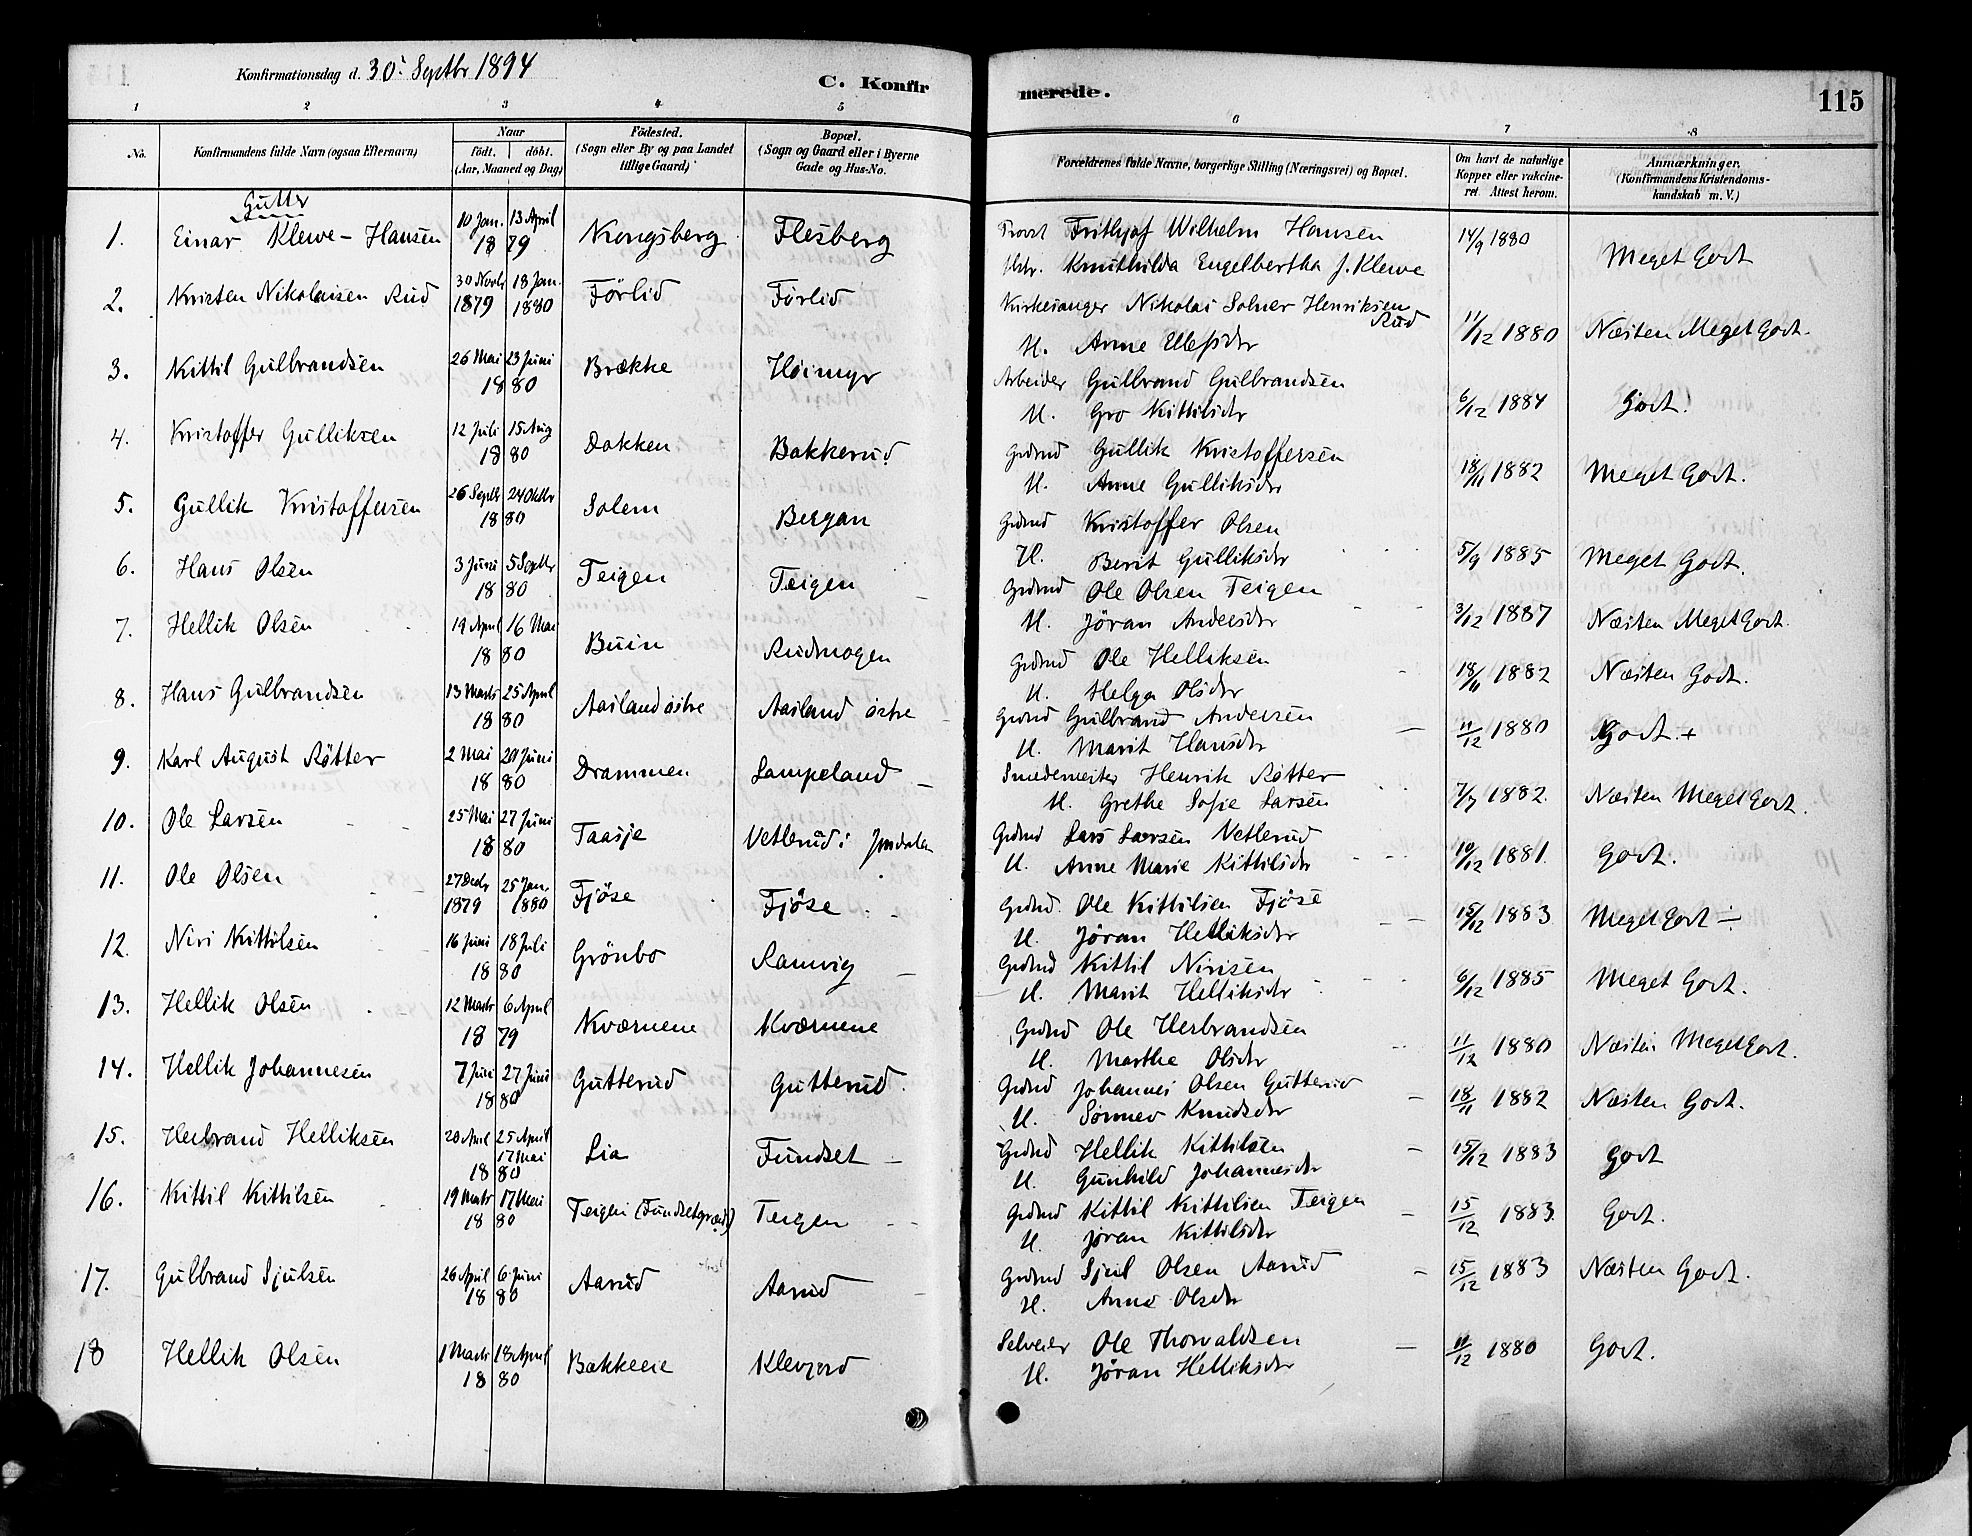 Konfirmationsdag d. 30' Septbr 1894
C. Konfirmerede.
115
1 2 3 4 5 6 7 8
No. Konfirmandens fulde Navn (ogsaa Efternavn) Naar födt. döbt. (Aar, Maaned og Dag) Födested. (Sogn eller By og paa Landet tillige Gaard) Bopæl. (Sogn og Gaard eller i Byerne Gade og Hus-No. Forældrenes fulde Navne, borgerlige Stilling (Næringsvei) og Bopæl. Om havt de naturlige Kopper eller vakcineret. Attest herom. Anmærkninger. (Konfirmandens Kristendomskundskab m. V.)
Gutter
1. Einar Klewe-Hansen 10 Jan. 13 April 1879 Kongsberg Flesberg Provst Frithjof Wilhelm Hansen 14/9 1880 Meget Godt
Hstr. Knuthilda Engelbertha J. Klewe
2. Kristen Nikolaisen Rud 30 Novbr 1879 18 Jan. 1880 Førlid Førlid Kirkesanger Nikolai Solner Henriksen Rud 11/12 1880 Næsten Meget Godt.
H. Anne Ellefsdr
3. Kittil Gulbrandsen 26 Mai 23 Juni 1880 Brække Høimyr Arbeider Gulbrand Gulbrandsen 6/12 1884 Godt.
H. Gro Kittilsdr
4. Kristoffer Gulliksen 12 Juli 15 Aug 1880 Dokken Bakkerud Grdmd Gullik Kristoffersen 18/11 1882 Meget Godt.
H. Anne Gulliksdr
5. Gullik Kristoffersen 26 Septbr 24 Oktbr 1880 Solem Bergan Grdmd Kristoffer Olsen 5/9 1885 Meget Godt.
H. Berit Gulliksdr
6. Hans Olsen 3 Juni 5 Septbr 1880 Teigen Teigen Grdmd Ole Olsen Teigen 3/12 1887 Næsten Meget Godt.
H. Jøran Andersdr
7. Hellik Olsen 19 April 16 Mai 1880 Buin Rudmogen Grdmd Ole Helliksen 18/11 1882 Næsten Godt.
H. Helga Olsdr
8. Hans Gulbrandsen 13 Marts 25 April 1880 Aasland østre Aasland østre Grdmd Gulbrand Andersen 11/12 1880 Godt +
H. Marit Hansdr
9. Karl August Røtter 2 Mai 20 Juni 1880 Drammen Lampeland Smedemester Henrik Røtter 7/7 1882. Næsten Meget Godt.
H. Grethe Sofie Larsen
10. Ole Larsen 25 Mai 27 Juni 1880 Taasje Vetlerud i Jondalen Grdmd Lars Larsen Vetlerud 10/12 1881. Godt.
H. Anne Marie Kittilsdr
11. Ole Olsen 27 Decbr 1879 25 Jan. 1880 Fjøse Fjøse Grdmd. Ole Kittilsen Fjøse 15/12 1883 Meget Godt ÷
H. Jøran Helliksdr
12. Niri Kittilsen 16 Juni 18 Juli 1880 Grønbo Ramvig Grdmd Kittil Nirisen 6/12 1885 Meget Godt.
H. Marit Helliksdr
13. Hellik Olsen 12 Marts 6 April 1879 Kværnene Kværnene Grdmd Ole Herbrandsen 11/12 1880 Næsten Meget Godt.
H. Marthe Olsdr
14. Hellik Johannesen 7 Juni 27 Juni 1880 Gutterud Gutterud. Grdmd Johannes Olsen Gutterud 18/11 1882 Næsten Godt.
H. Sønnev Knudsdr
15. Herbrand Helliksen 20 April 25 April 17 Mai 1880 Lia Fundset Grdmd Hellik Kittilsen 15/12 1883 Godt
H. Gunhild Johannesdr
16. Kittil Kittilsen 19 Marts 17 Mai 1880 Teigen (Fundsetgrænd) Teigen Grdmd Kittil Kittilsen Teigen 15/12 1883. Godt.
H. Jøran Kittilsdr
17. Gulbrand Sjulsen 26 April 6 Juni 1880 Aarud Aarud Grdmd Sjul Olsen Aarud 15/12 1883 Næsten Godt.
H. Anne Olsdr
18 Hellik Olsen 1 Marts 18 April 1880 Bækkeeie Klevjord Selveier Ole Thorvaldsen 11/12 1880 Godt.
H. Jøran Helliksdr